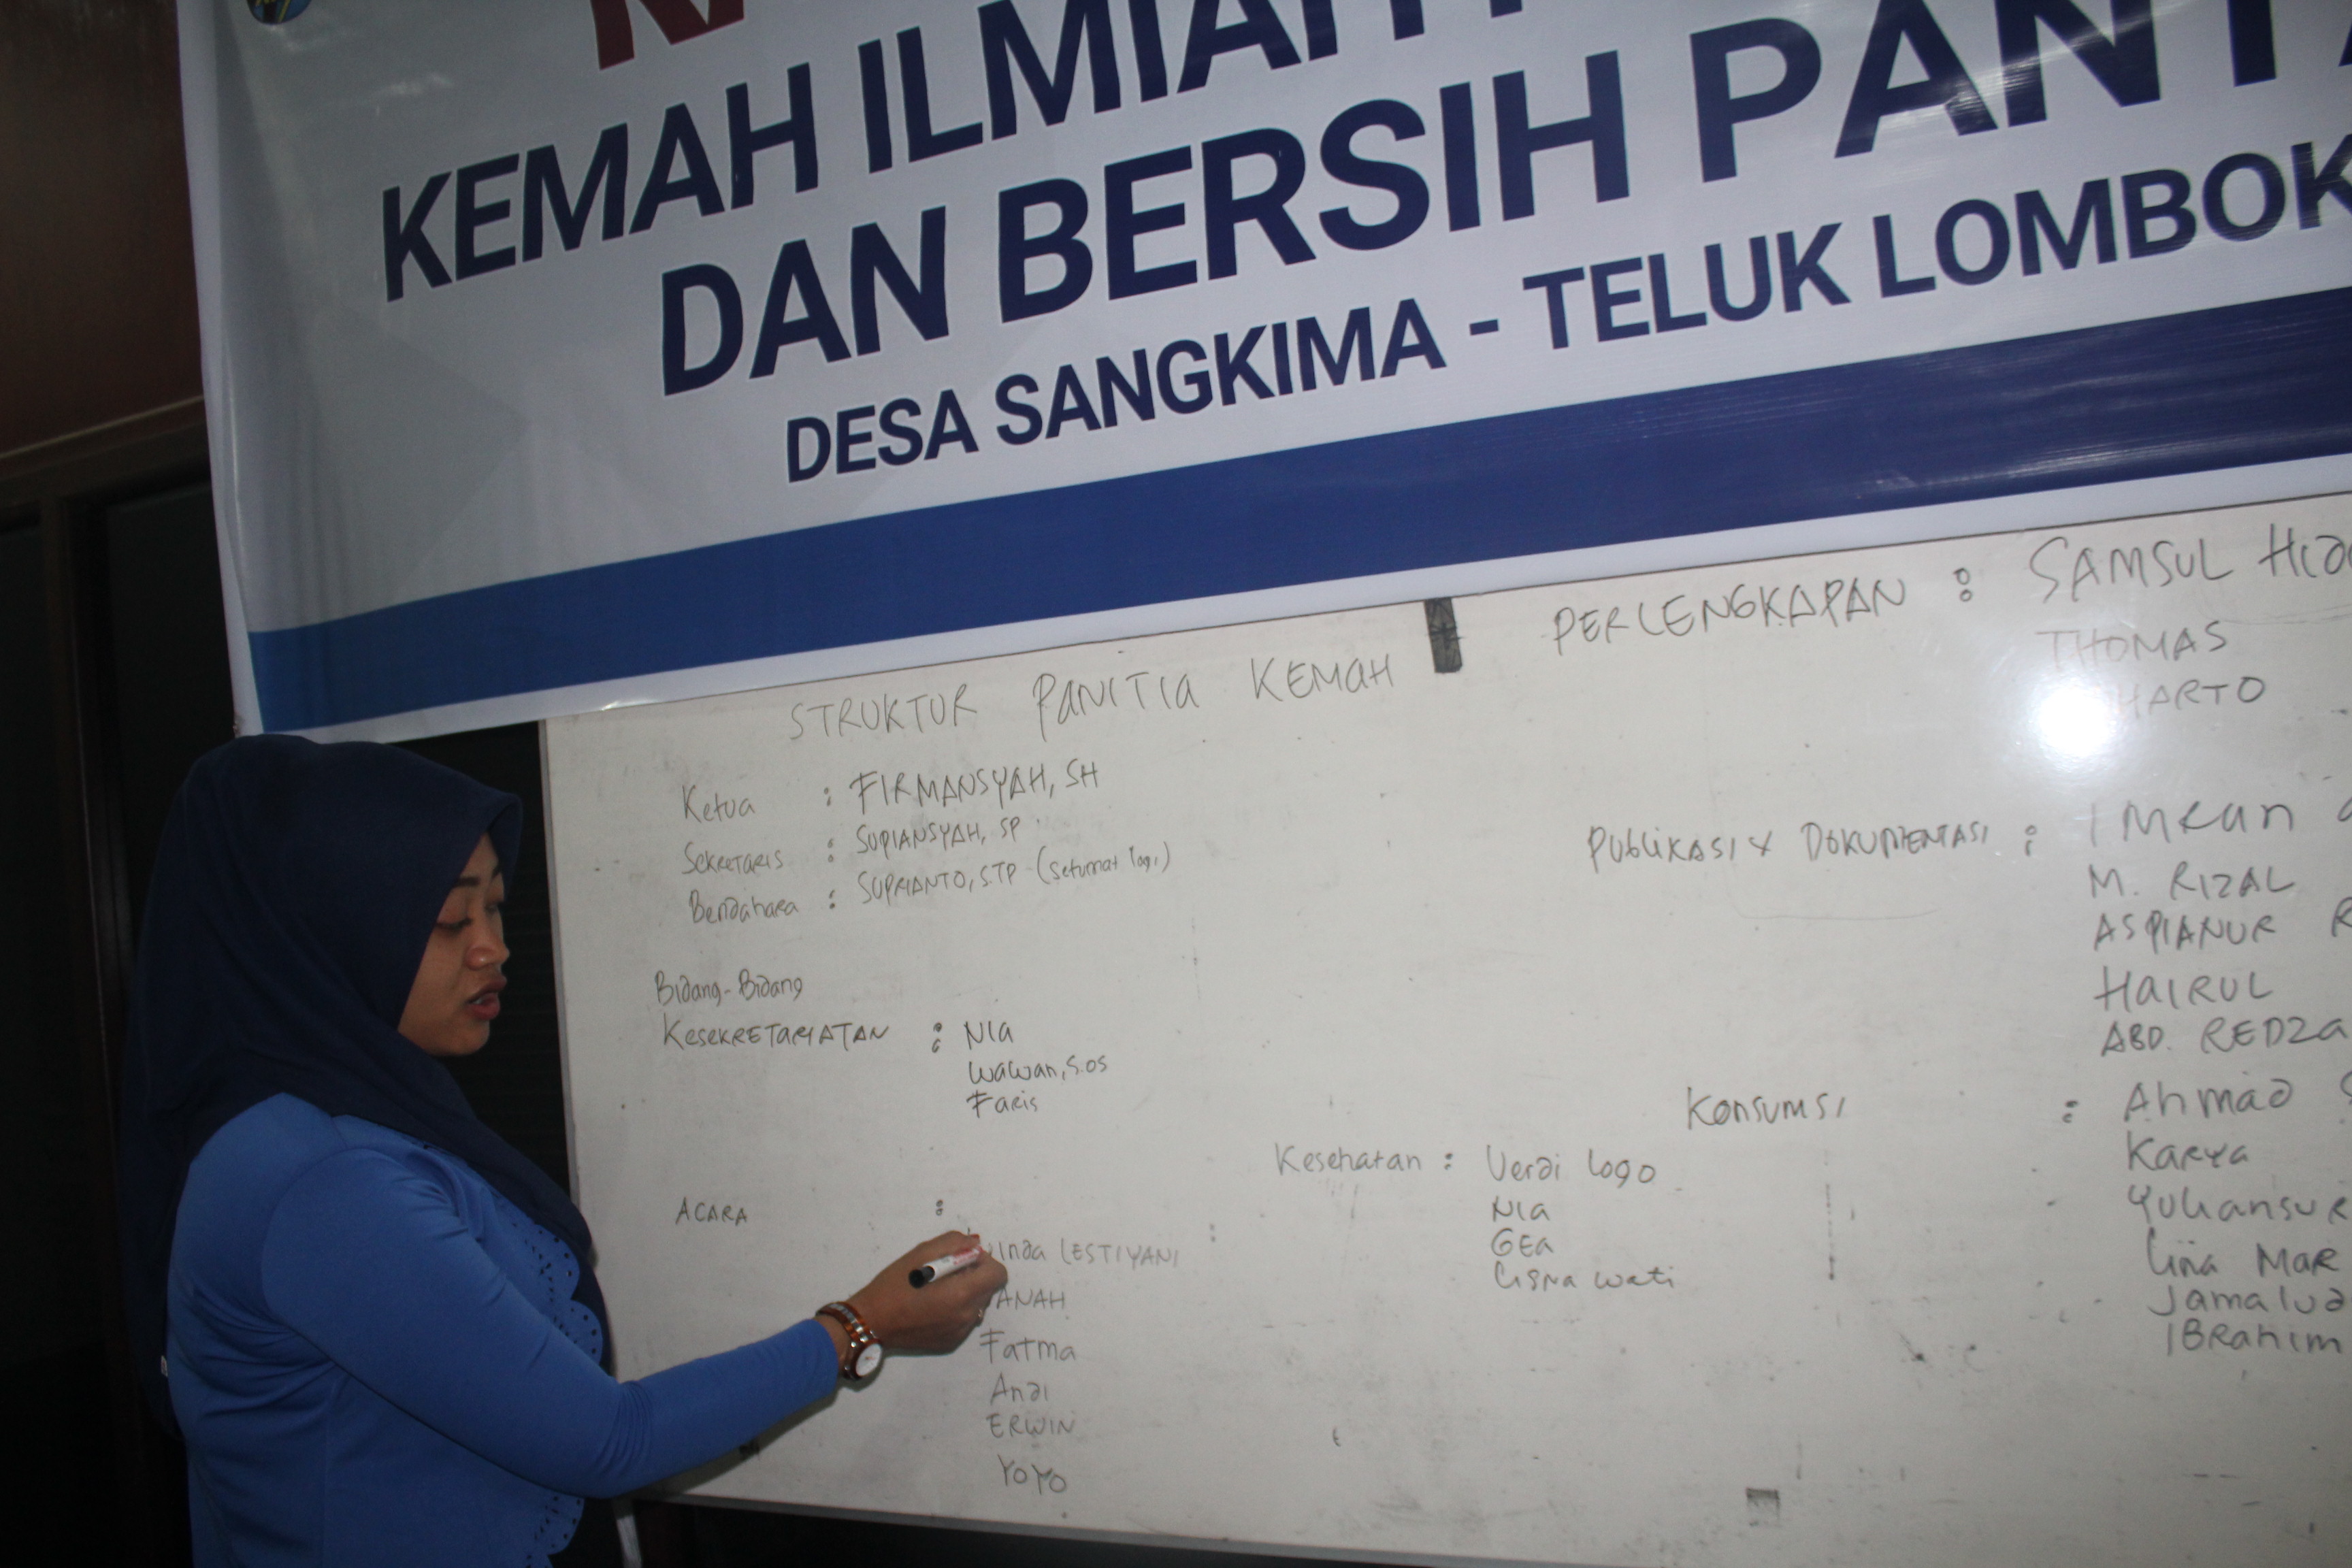 KEMAH ILMIAH
DAN BERSIH PANTA
DESA SANGKIMA - TELUK LOMBOK
STRUKTUR PANITIA KEMAH
Ketua : FIRMANSYAH, SH
Sekretaris : SUPIANSYAH, SP
Bendahara : SUPRIANTO, S.TP (Seturnat logi)
Bidang-Bidang
KesekRETARIATAN : NIa
wawan, S.OS
Faris
ACARA :
inda LESTIYANI
ANAH
Fatma
Andi
ERWIN
YOYO
Kesehatan : Verdi logo
NIa
GEa
Lisna wati
PERLENGKAPAN : SAMSUL Hida
THOMAS
HARTO
PUBLIKASI & DOKUMENTASI : IMRan
M. RIZAL
ASPIANUR R
HaIRUL
ABD. REDZa
Konsumsi : Ahmad S
Karya
Yuliansur
Lina Mar
Jamalud
IBRahim